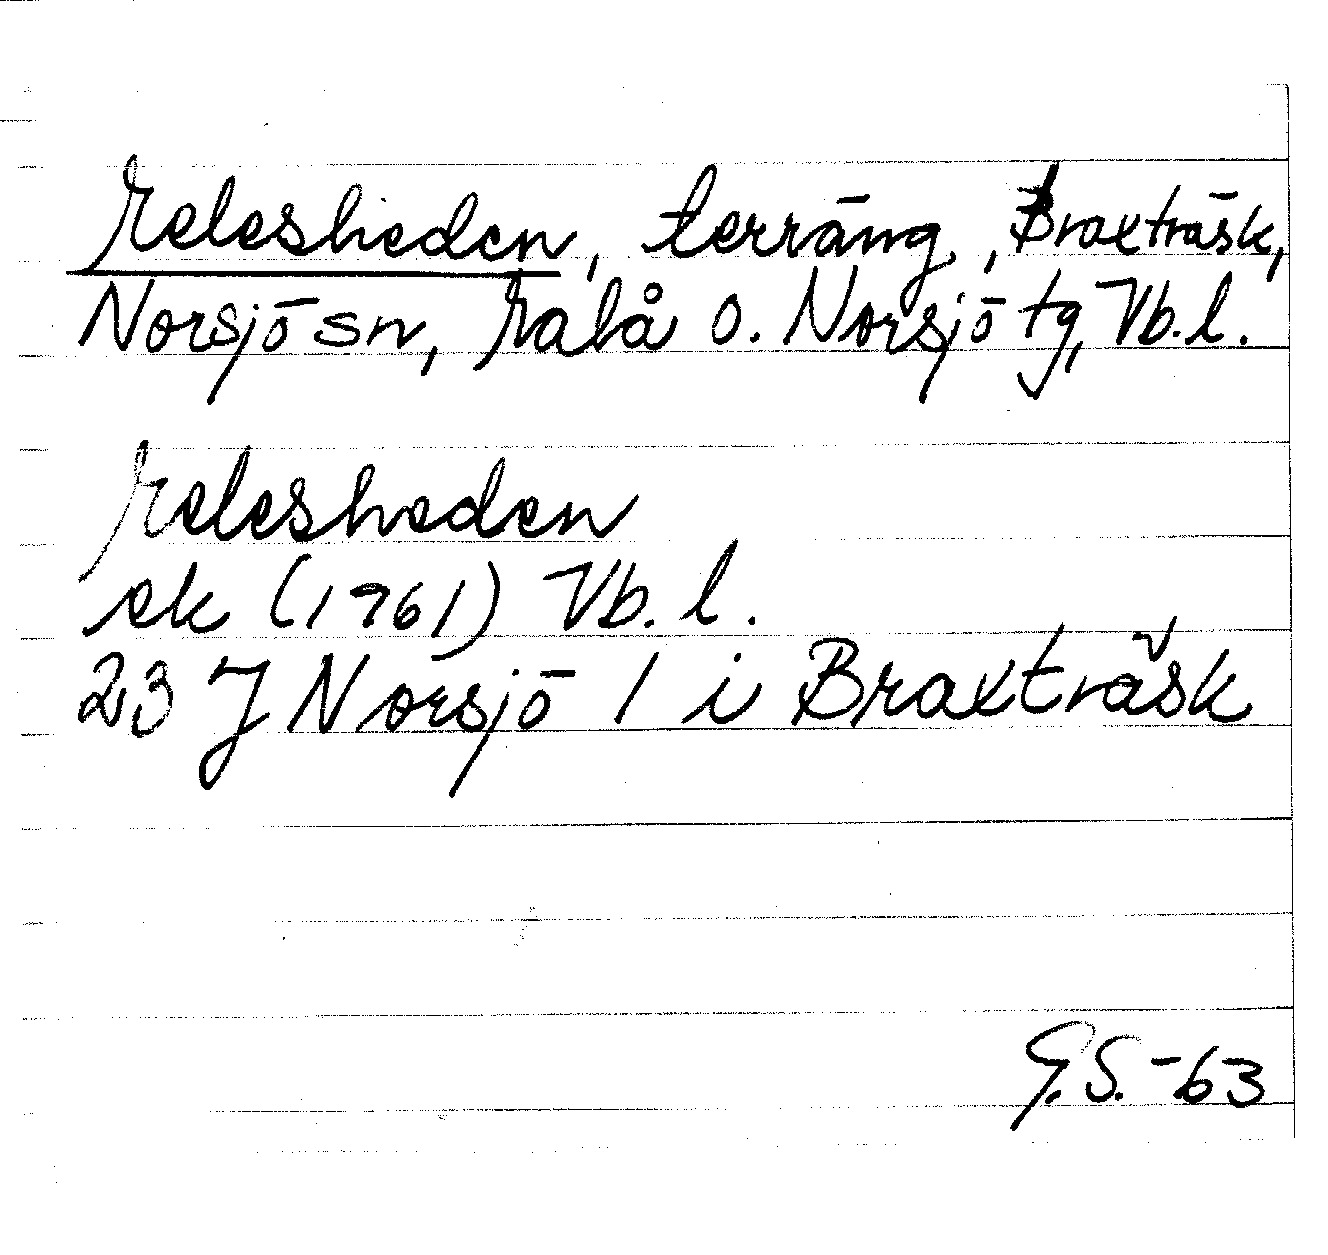 Melesheden, terräng, Braxträsk,
Norsjö sn, Malå o. Norsjö tg, Vb.l.
Melesheden
ek (1961) Vb.l.
23 J Norsjö 1 i Braxträsk
G.S.-63